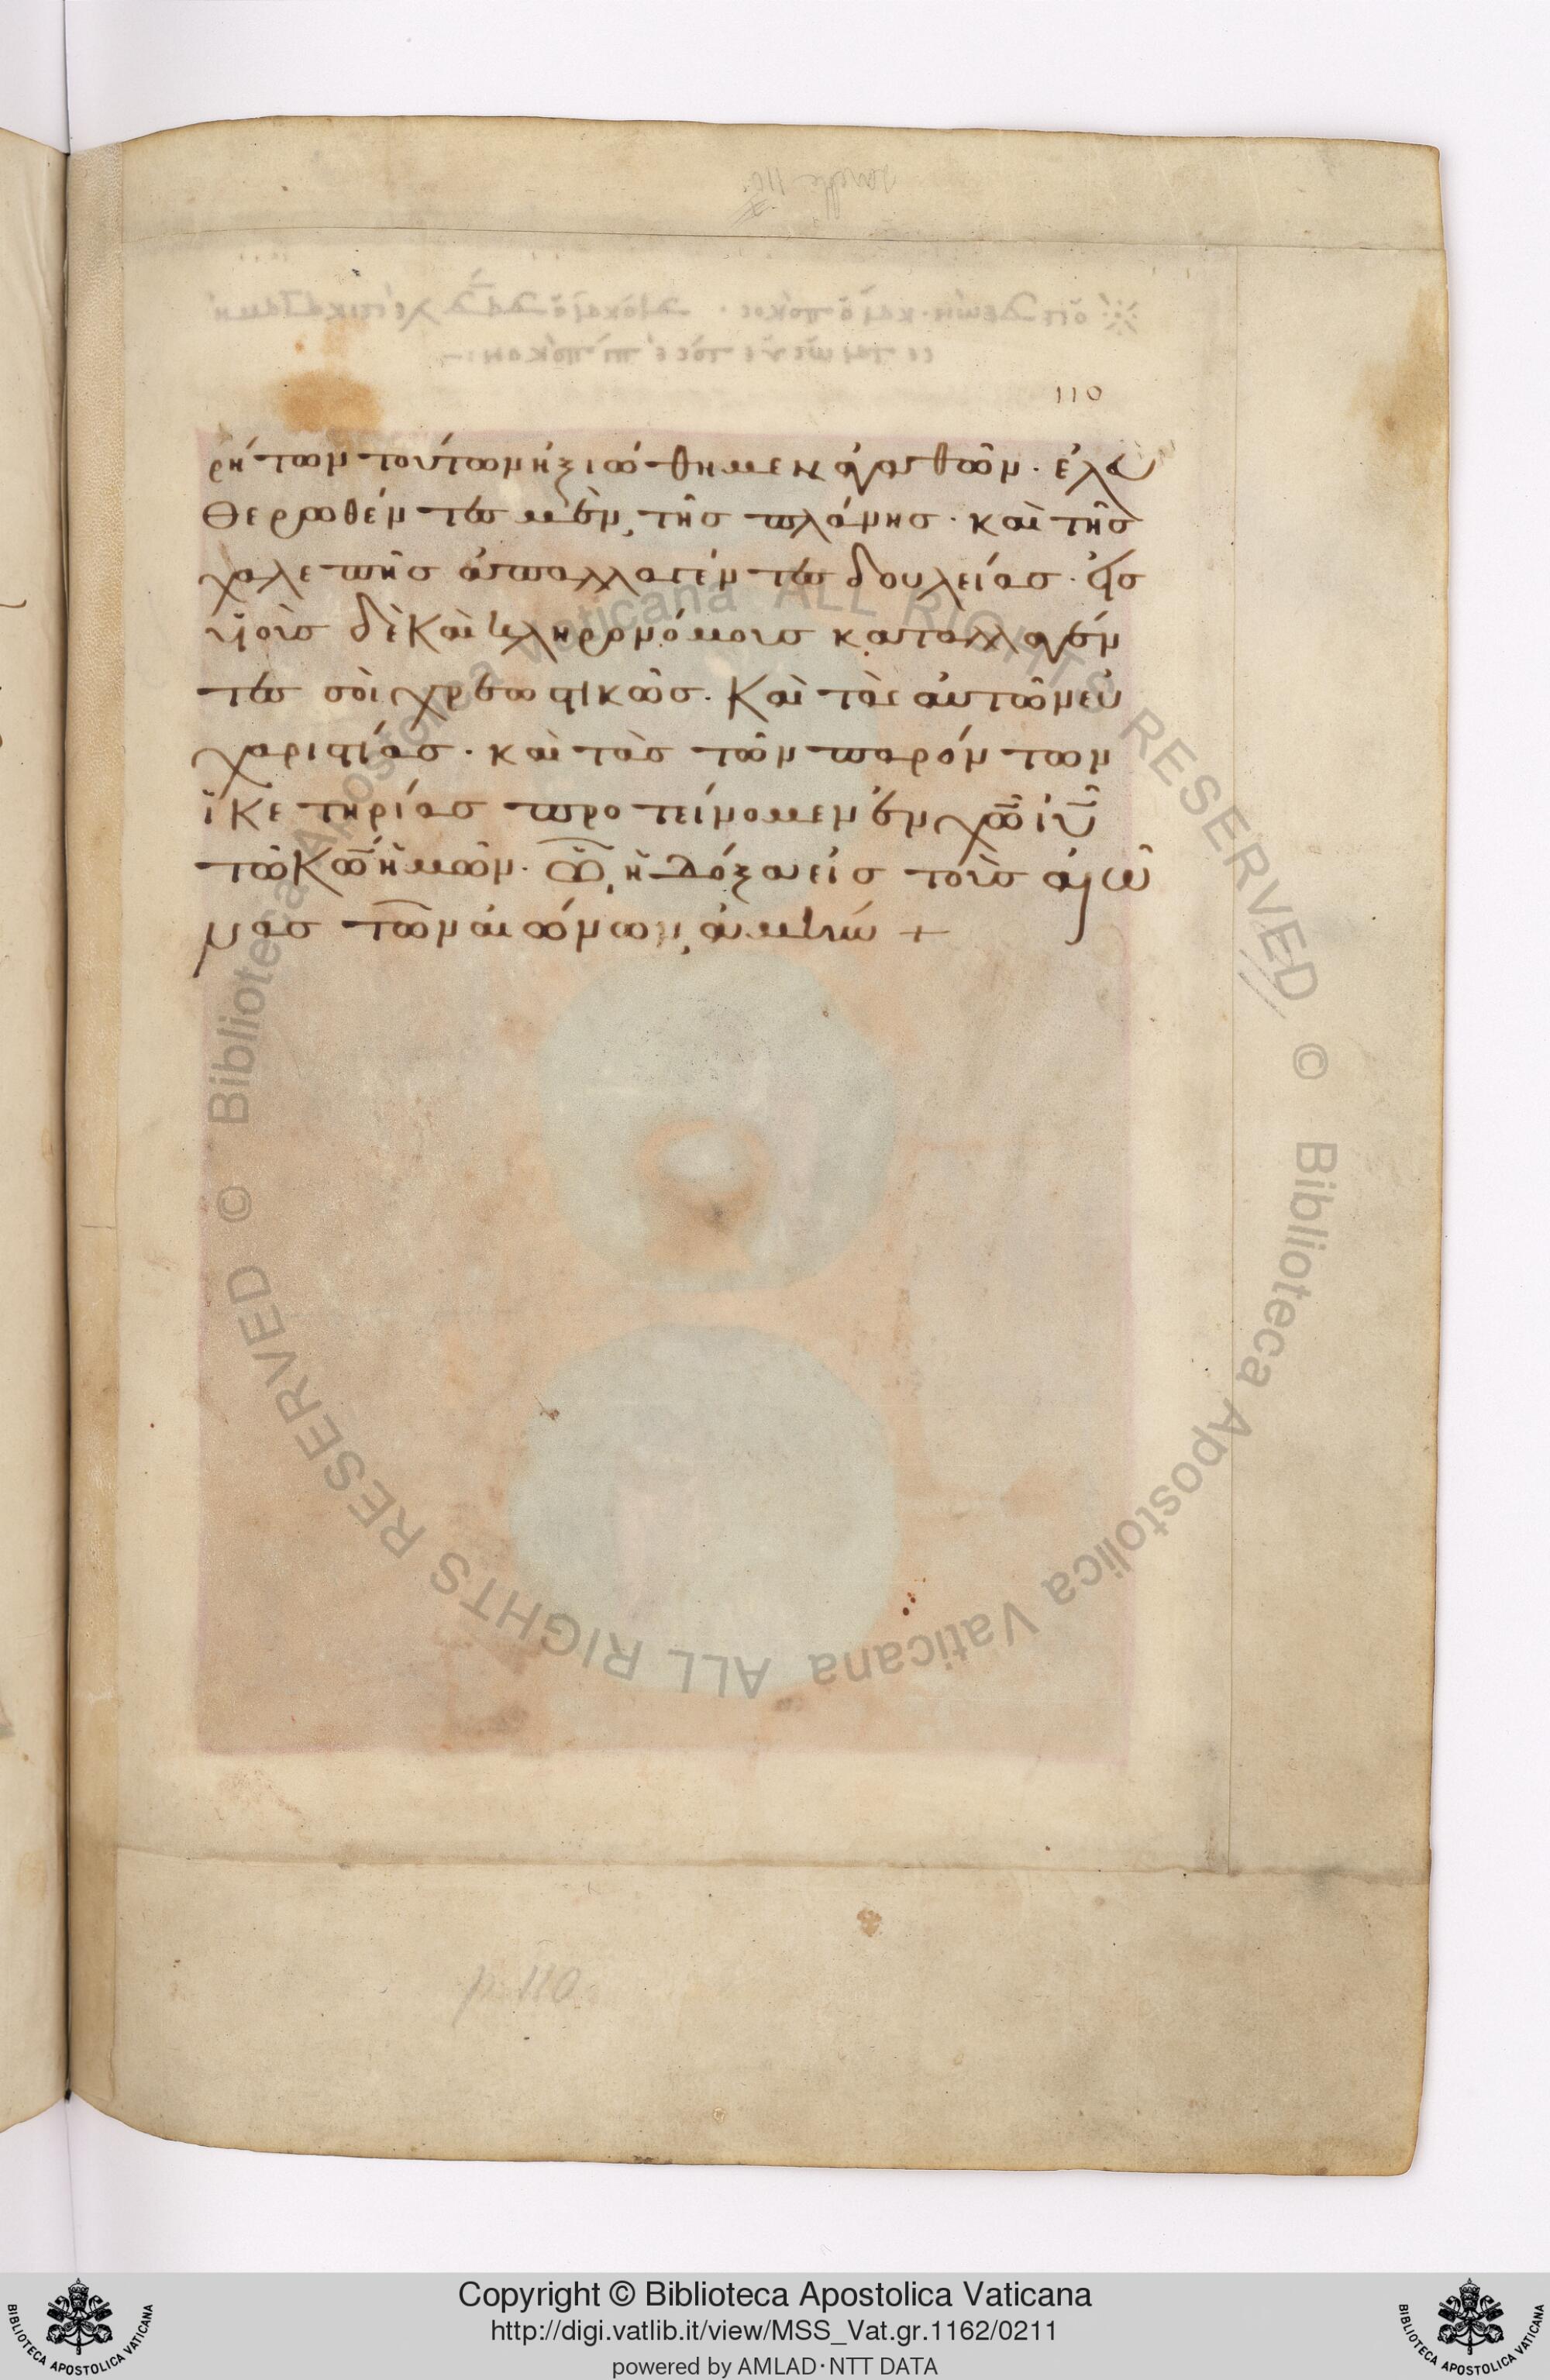 110
ρήτων τούτων ἠξιώθημεν ἀγαθῶν· ἐλευ
θερωθέντες μὲν, τῆς πλάνης· καὶ τῆς
χαλεπῆς ἀπαλλαγέντες δουλείας· ὡς
υἱοῖς δὲ καὶ κληρονόμοις καταλλαγέν
τες σοὶ χρεωστικῶς. καὶ τὰς αὐτῶν εὐ
χαριστίας· καὶ τὰς τῶν παρόντων
ἱκετηρίας προτείνομεν ἐν χω ιυ
τῶ κω ἡμῶν· ω, ἡ δόξα εἰς τοὺς αἰῶ
νας τῶν αἰώνων, ἀμήν +
p. 110
© Biblioteca Apostolica Vaticana ALL RIGHTS RESERVED © Biblioteca Apostolica Vaticana ALL RIGHTS RESERVED
Copyright © Biblioteca Apostolica Vaticana
http://digi.vatlib.it/view/MSS_Vat.gr.1162/0211
powered by AMLAD·NTT DATA
BIBLIOTECA APOSTOLICA VATICANA
BIBLIOTECA APOSTOLICA VATICANA